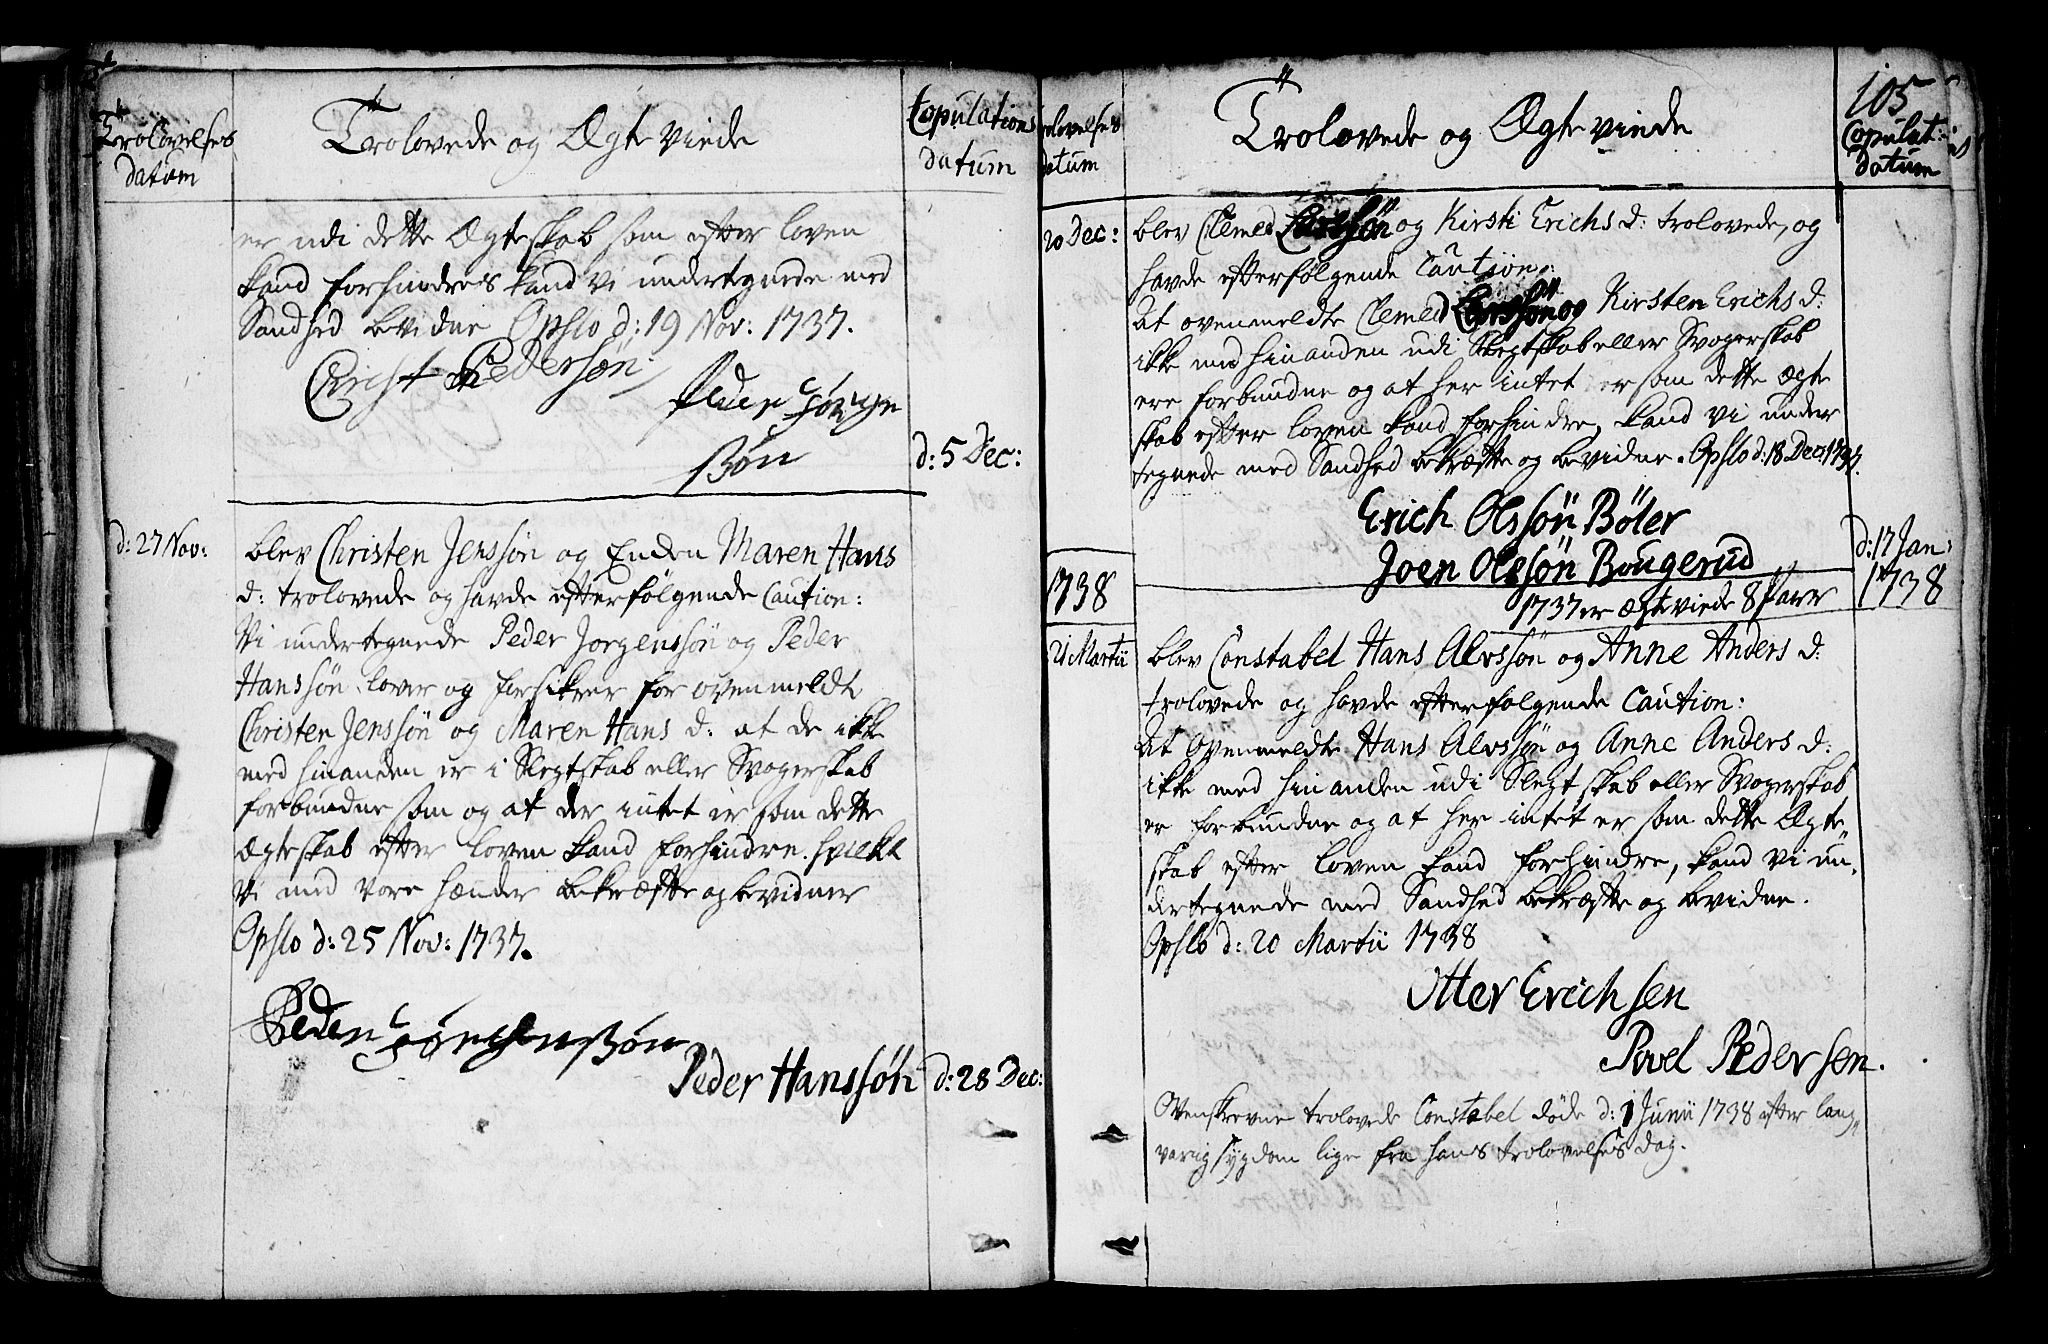 Trolovelses
datum
Trolovede og Ægte Viede
Copulations
datum
er udi dette Ægteskab som efter Loven
kand forhindres kand vi undertegnede med
Sandhed bevidne Opslo d: 19 Nov: 1737.
Christ Pedersøn
Peder Jørgen
ssøn
d: 5 Dec:
d: 27 Nov:
blev Christen Jenssøn og Enken Maren Hans
d: trolovede og havde efterfølgende Caution:
Vi undertegnede Peder Jorgenssøn og Peder
Hanssøn lover og forsikrer for ovenmeldte
Christen Jenssøn og Maren Hans d: at de ikke
med hinanden er i Slegtskab eller Svogerskab
forbundne som og at der intet er som dette
Ægteskab efter Loven kand forhindre. hvilket
vi med vore Hænder bekræfte og bevidner
Opslo d: 25 Nov: 1737.
Peder Jørgenssøn
Peder Hanssøn
d: 28 Dec:
105
Trolovelses
datum
Trolovede og Ægte viede
Copulat:
datum
20 Dec:
blev Clemed Larssøn og Kirsti Erichs d: trolovede, og
havde efterfølgende Caution:
At ovenmeldte Clemed Larssøn og Kirsten Erichs d:
ikke med hinanden udi Slegtskab eller Svogerskab
ere forbundne og at her intet er som dette Ægte
skab efter Loven kand forhindre, kand vi under
tegnede med Sandhed bekræfte og bevidne. Opslo d: 18 Dec: 1737.
Erich Olssøn Bøler
Joen Olssøn Bougerud
d: 17 Jan:
1738
1738
1737 er Ægteviede 8 Parr
21 Martii
blev Constabel Hans Alvssøn og Anne Anders d:
trolovede og havde efterfølgende Caution:
At Ovenmeldte Hans Alvssøn og Anne Anders d:
ikke med hinanden udi Slegtskab eller Svogerskab
er forbundne og at her intet er som dette Ægte
skab efter Loven kand forhindre, kand vi un
dertegnede med Sandhed bekræfte og bevidne.
Opslo d: 20 Martii 1738
Otter Erichsen
Povel Pedersen.
Ovenskrevne trolovede Constabel døde d: 1 Junii 1738 efter lang
varig sygdom lige fra hans trolovelses dag.